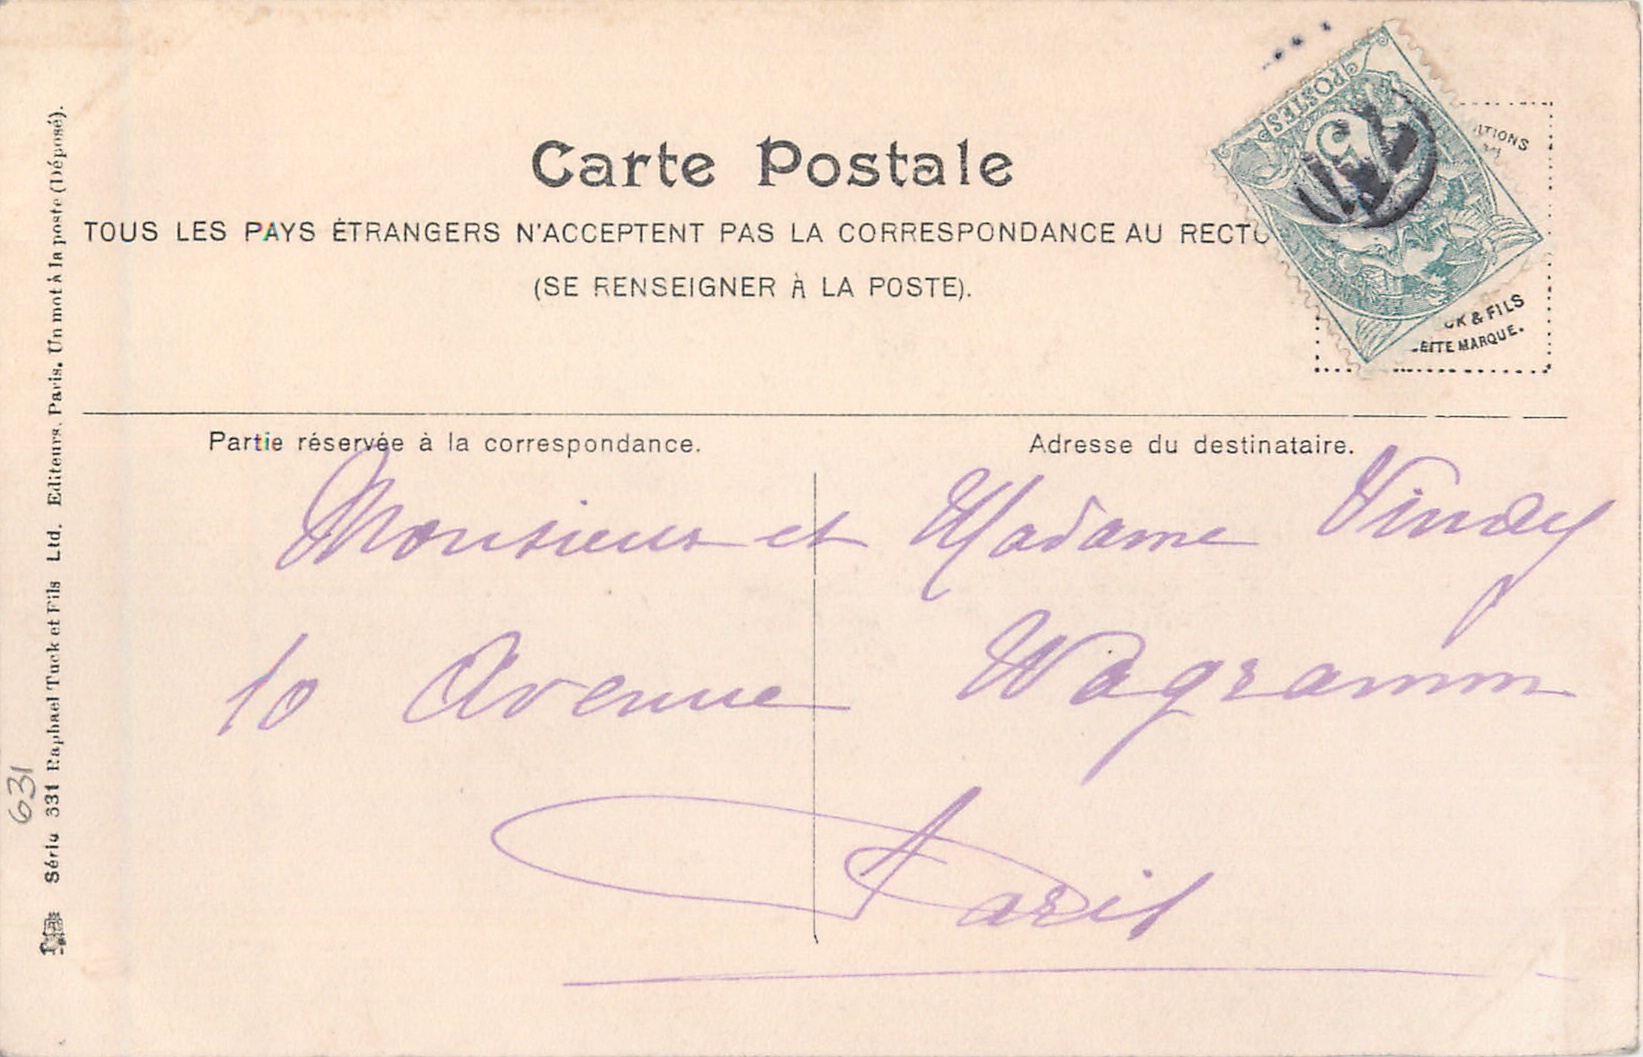 Carte Postale
TOUS LES PAYS ÉTRANGERS N'ACCEPTENT PAS LA CORRESPONDANCE AU RECTO
(SE RENSEIGNER À LA POSTE).
POSTES
5
& FILS
MARQUE.
Partie réservée à la correspondance.
Adresse du destinataire.
Monsieur et Madame Vindey
10 Avenue Wagramm
Paris
Série 331 Raphael Tuck et Fils Ltd. Editeurs, Paris. Un mot à la poste (Déposé).
631